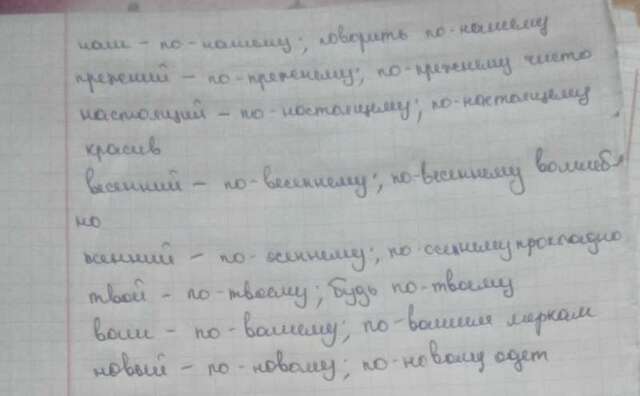 наш - по-нашему; говорить по-нашему
прежний - по-прежнему; по-прежнему чисто
настоящий - по-настоящему; по-настоящему
красив
весенний - по-весеннему; по-весеннему волшеб
но
осенний - по-осеннему; по осеннему прохладно
твой - по-твоему; будь по-твоему
ваш - по-вашему; по-вашим меркам
новый - по-новому; по-новому одет